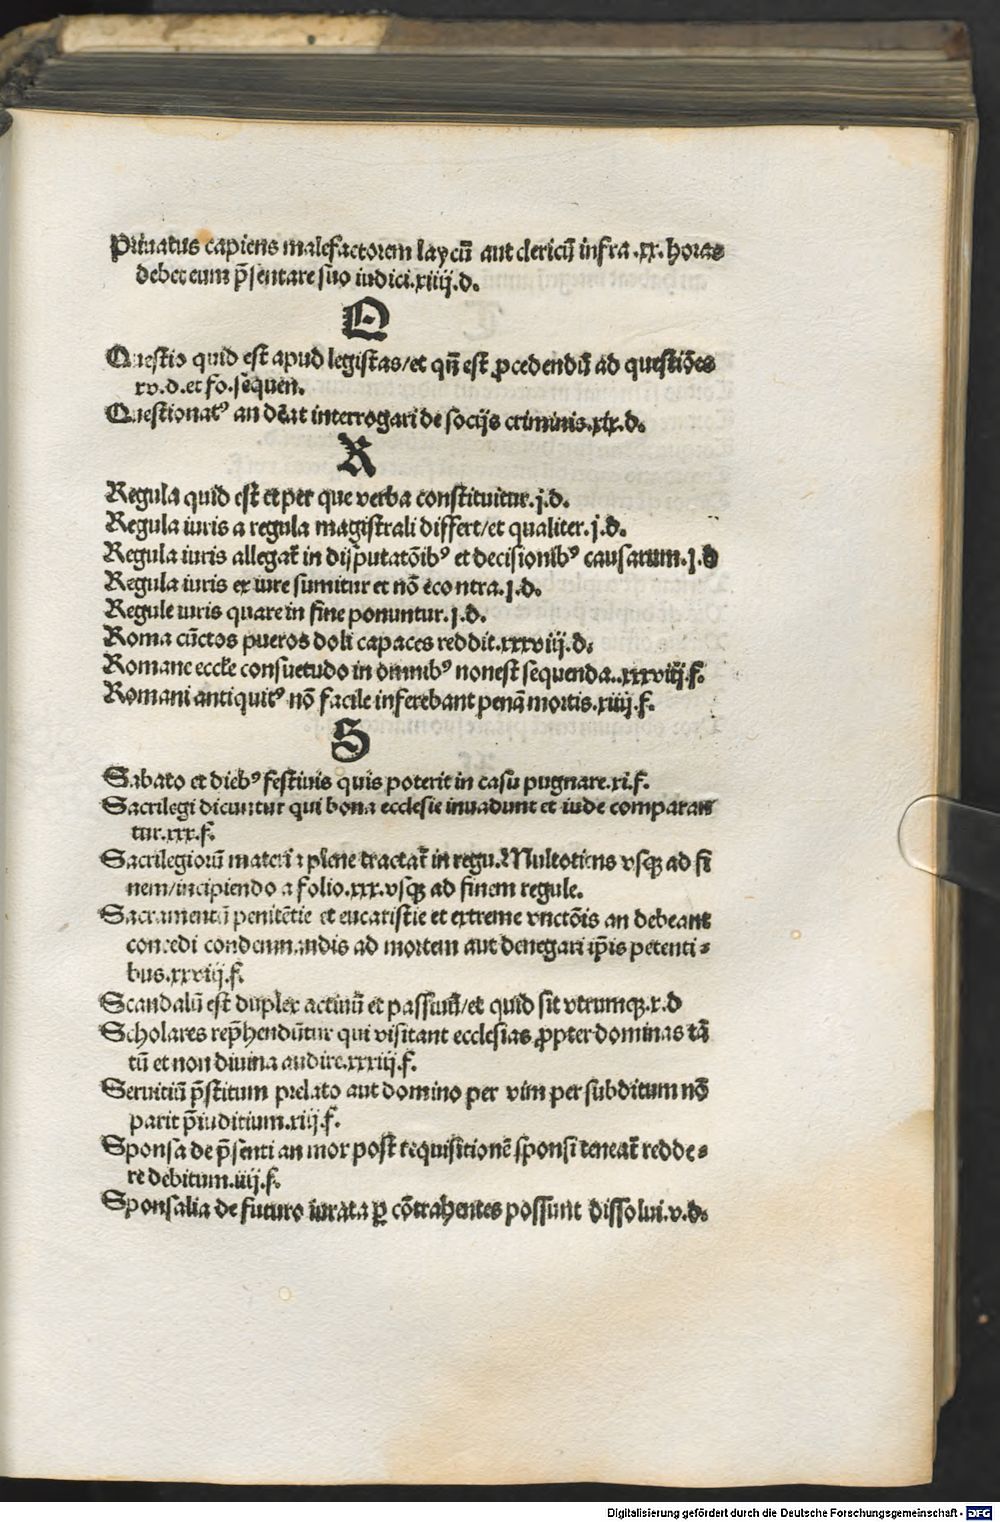 Priuatus capiens malefactorem laycū aut clericū infra .xx. horas
debet eum p̄sentare suo iudici.xiiij.d.
Q
Questio quid est apud legistas/et qn̄ est ꝓcedendū ad questiões
xv.d.et fo.sequen.
Questionatꝰ an debeat interrogari de socijs criminis.xix.d.
R
Regula quid est et per que verba constituitur.j.d.
Regula iuris a regula magistrali differt/et qualiter.j.d.
Regula iuris allegat̄ in disputatōibꝰ et decisionibꝰ causarum.j.d
Regula iuris ex iure sumitur et nō econtra.j.d.
Regule iuris quare in fine ponuntur.j.d.
Roma cūctos pueros doli capaces reddit.xxxviij.d.
Romane eccle consuetudo in omnibꝰ non est sequenda..xxxviiij.f.
Romani antiquitꝰ nō facile inferebant penā mortis.xiiij.f.
S
Sabato et diebꝰ festiuis quis poterit in casu pugnare.xi.f.
Sacrilegi dicuntur qui bona ecclesie inuadunt et iude comparan
tur.xxx.f.
Sacrilegiorū materia plene tractat̄ in regu.Multotiens vsqꝫ ad fi
nem/incipiendo a folio.xxx.vsqꝫ ad finem regule.
Sacramentū penitētie et eucaristie et extreme vnctōis an debeant
concedi condemnandis ad mortem aut denegari ip̄is petenti⸗
bus.xxviij.f.
Scandalū est duplex actiuū et passiuū/et quid sit vtrumqꝫ.x.d
Scholares rep̄hendūtur qui visitant ecclesias ꝓpter dominas tā
tū et non diuina audire.xxxiij.f.
Seruitiū p̄stitum prelato aut domino per vim per subditum nō
parit p̄iuditium.xiij.f.
Sponsa de p̄senti an mox post requisitionē sponsi teneat̄ redde⸗
re debitum.iiij.f.
Sponsalia de futuro iurata ꝑ cōtrahentes possunt dissolui.v.d.
Digitalisierung gefördert durch die Deutsche Forschungsgemeinschaft - DFG